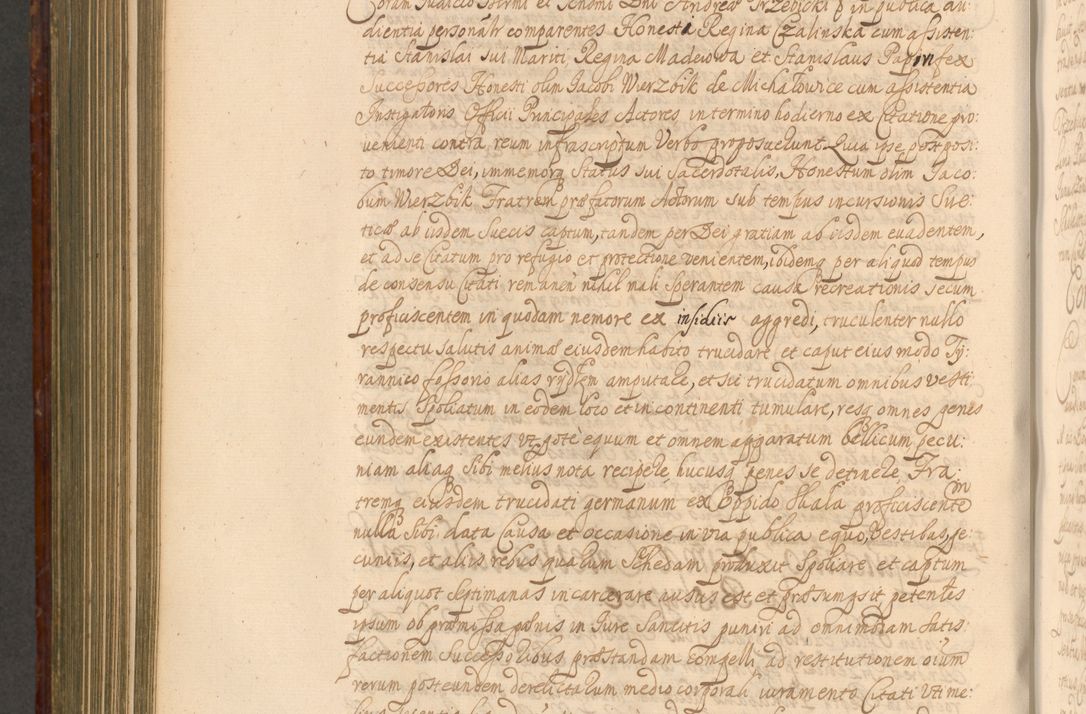 Coram Judicio Illrmi et Rendmi Dni Andreæ Trzebicki in publica au:
dientia personalr comparentes Honesta Regina Czalinska cum assisten:
tia Stanislai sui Mariti, Regina Madeiova et Stanislaus Papinifex
Successores Honesti olim Jacobi Wierzbik de Michalowice cum assistentia
Instigatoris Officii Principales Actores in termino hodierno ex Citatione pro:
venienti contra reum infrascriptum Verbo proposuerunt. Quia ipse post posi:
to timore Dei, immemorq Status sui Sacerdotalis, Honestum olim Jaco:
bum Wierzbik Fratrem præfatorum Actorum sub tempus incursionis Sue:
ticæ ab iisdem Suecis captum, tandem per Dei gratiam ab iisdem evadentem,
et ad se Citatum pro refugio et protectione venientem, ibidemq per aliquod tempus
de consensu Citati remanen nihil mali Sperantem causa recreationis secum
proficiscentem in quodam nemore ex insidiis aggredi, truculenter nullo
respectu salutis animæ eiusdem habito trucidare et caput eius modo Ty:
rannico fossorio alias rydlem amputare, et sic trucidatum omnibus vesti:
mentis Spoliatum in eodem loco et in continenti tumulare, resq omnes genes
eundem existentes vt pote equum et omnem apparatum bellicum pecu:
niam aliaq Sibi melius nota recipere, hucusq penes se detinere, Fra:
tremq eiusdem trucidati germanum ex Oppido Skala proficiscente in
nulla Sibi data Causa et occasione in via publica equo, Vestibus, pe:
cuniis, et aliis rebus quarum Schedam produxit Spoliare et captum
per aliquot Septimanas incarcerare ausus est et præsumpsit petentes
ipsum ob præmissa pænis in Jure Sancitis puniri ad omnimodam satis:
factionem Successoribus præstandam compelli, ad restitutionem oium
rerum post eundem derelictarum medio corporali iuramento Citati Vti me: